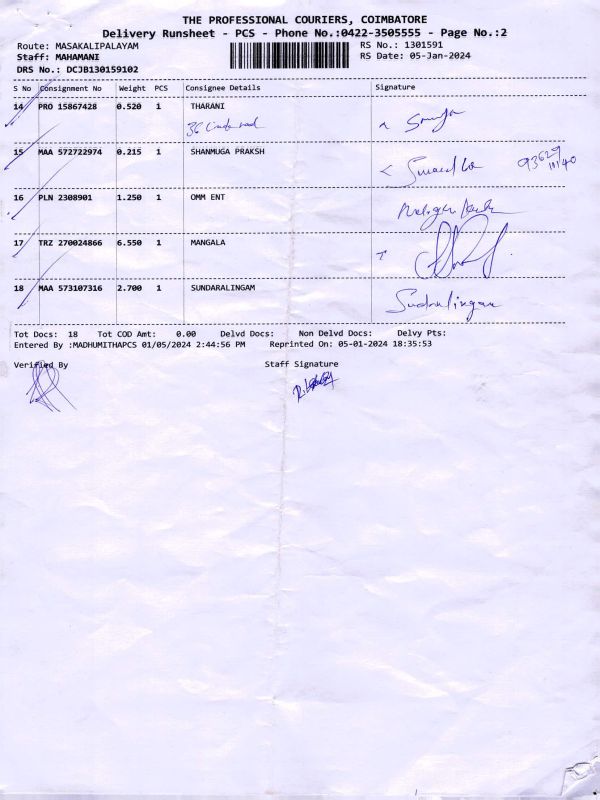 THE PROFESSIONAL COURIERS, COIMBATORE
Delivery Runsheet - PCS - Phone No.:0422-3505555 - Page No.:2
Route: MASAKALIPALAYAM RS No.: 1301591
Staff: MAHAMANI RS Date: 05-Jan-2024
DRS No.: DCJB130159102
S No Consignment No Weight PCS Consignee Details Signature
14 PRO 15867428 0.520 1 THARANI
15 MAA 572722974 0.215 1 SHANMUGA PRAKSH
93629
16 PLN 2308901 1.250 1 OMM ENT
17 TRZ 270024866 6.550 1 MANGALA
18 MAA 573107316 2.700 1 SUNDARALINGAM
Sundralingam
Tot Docs: 18 Tot COD Amt: 0.00 Delvd Docs: Non Delvd Docs: Delvy Pts:
Entered By :MADHUMITHAPCS 01/05/2024 2:44:56 PM Reprinted On: 05-01-2024 18:35:53
Verified By Staff Signature